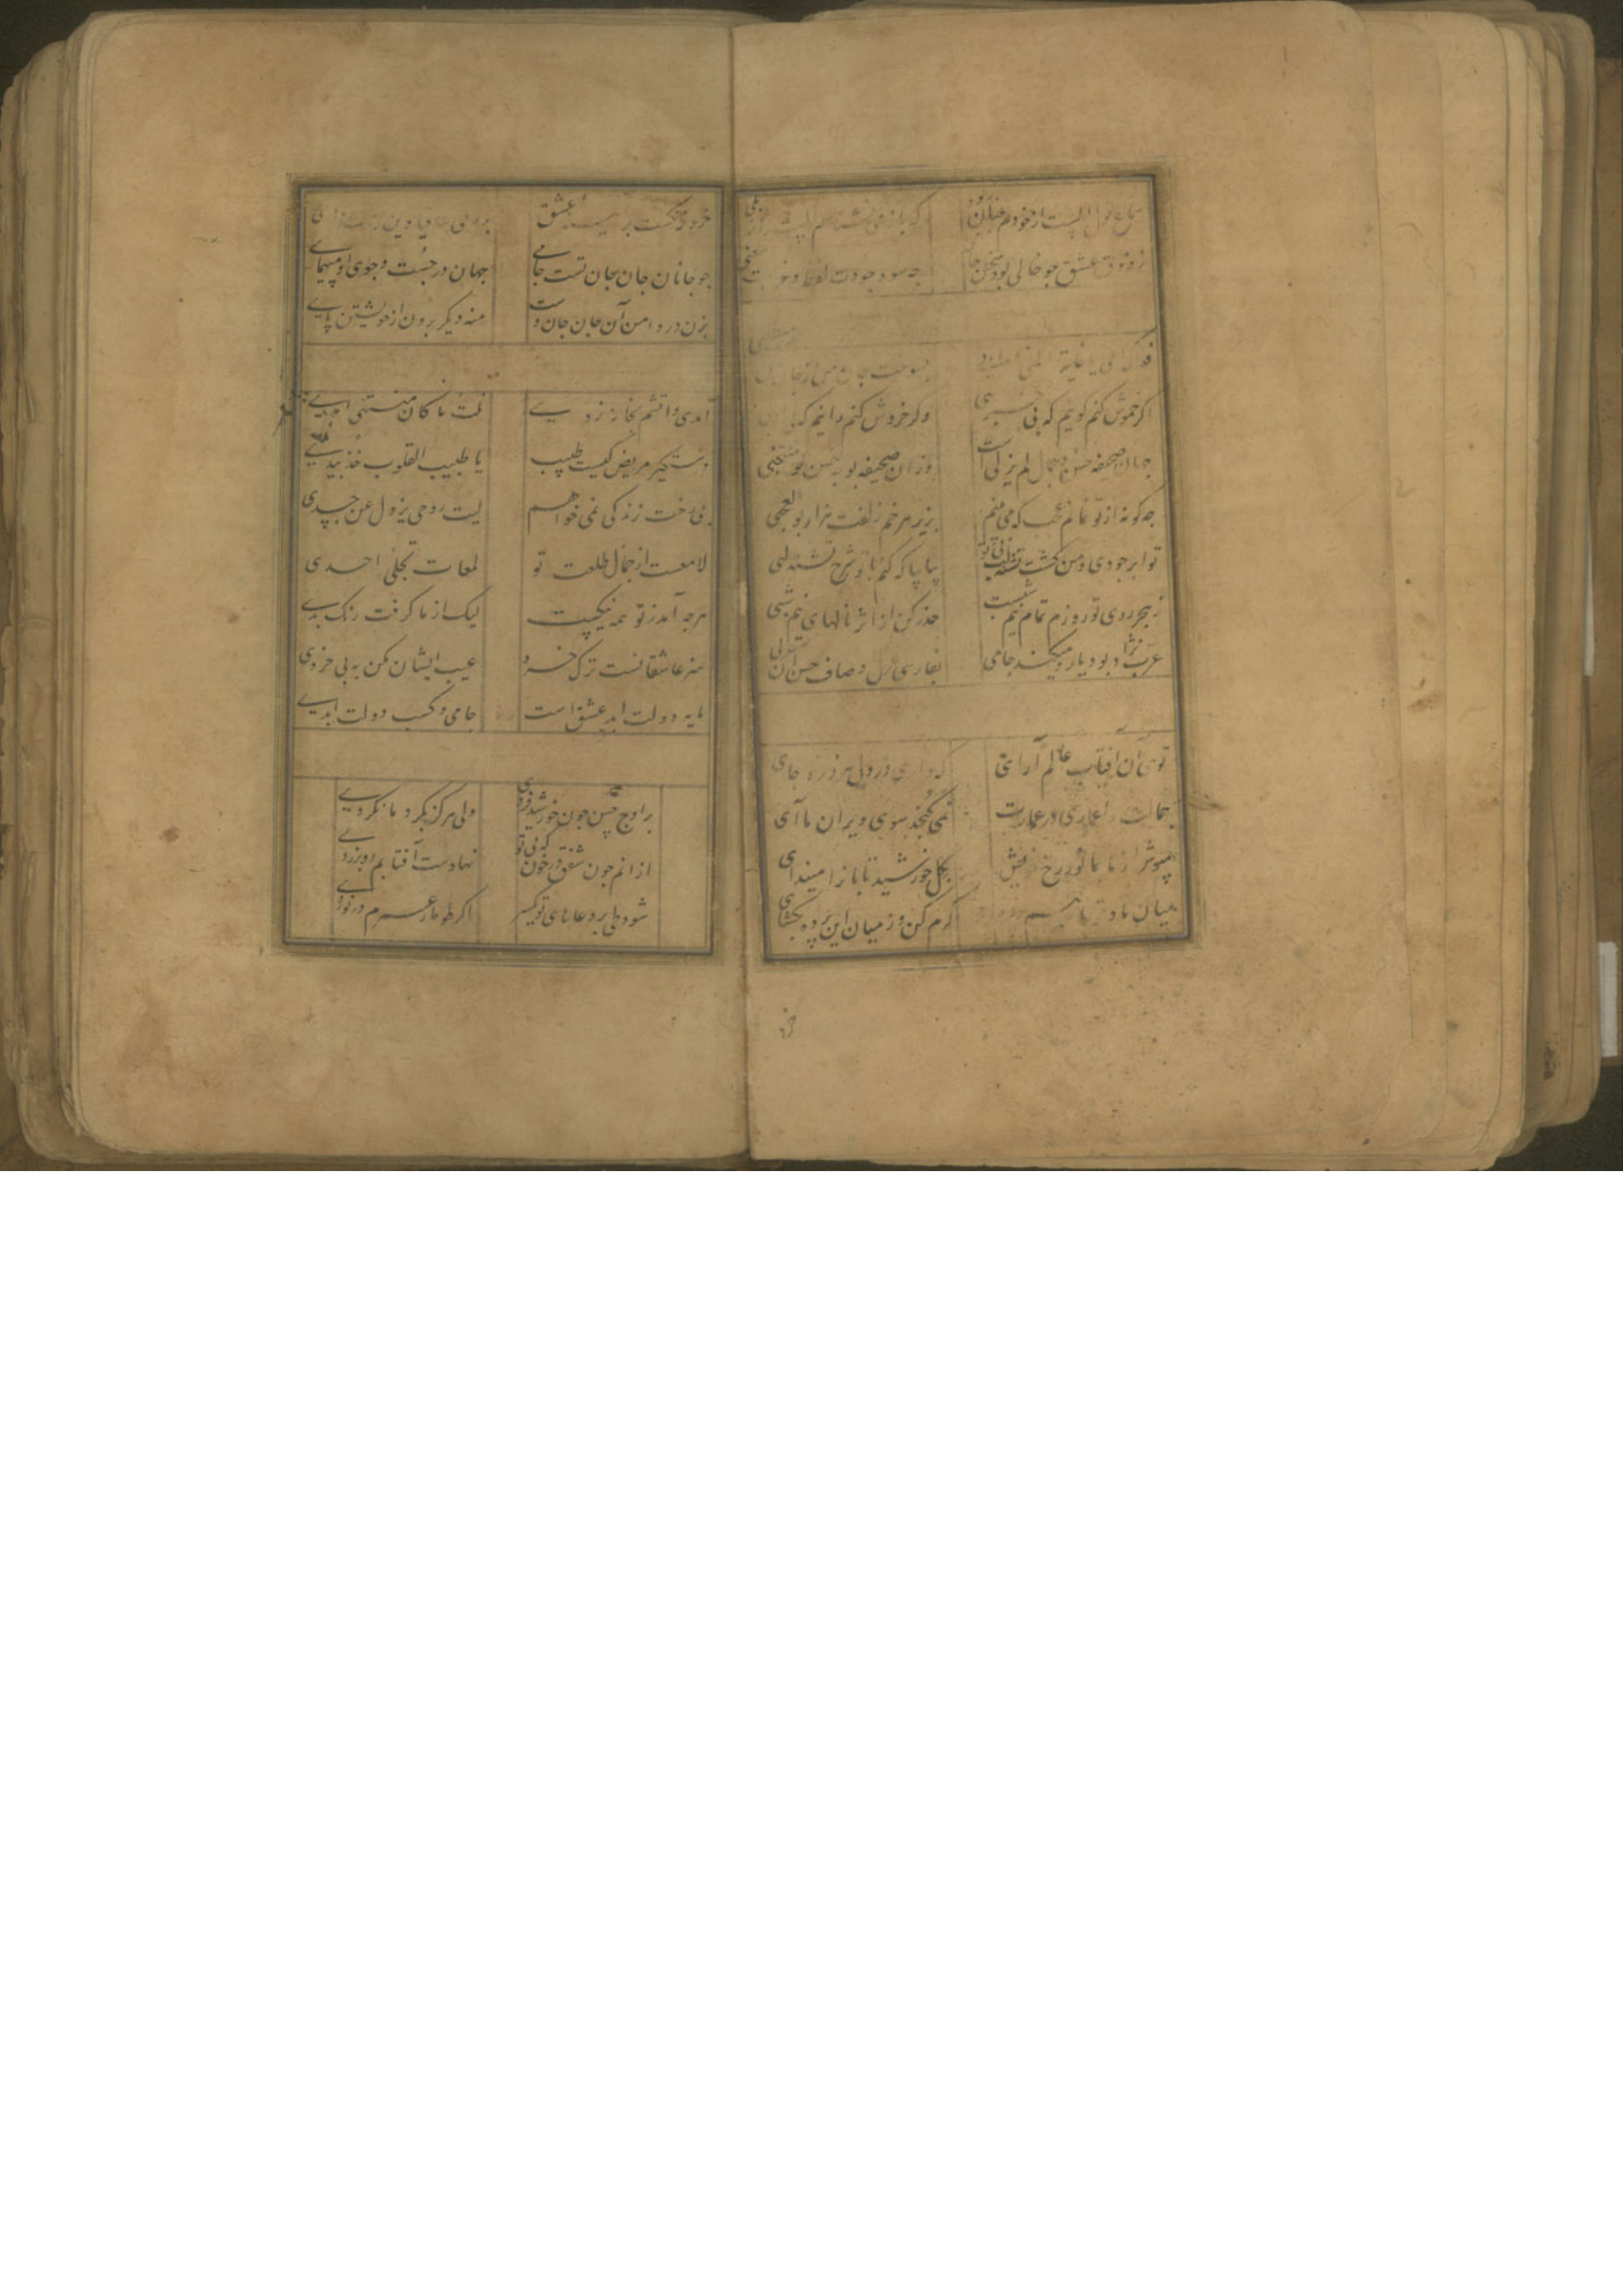 سماع قول الست از خودم چنان بربود که باز می نشناسم الست را ز بلی
ز ذوق عشق چو خالی بود سخن جامی چه سود جودت لفظ و
فدک امی یا غایة المنی
اگر خموش کنم گوییم که بی وگر خروش کنم رانیم که
جمال صحیفه حسن و جمال لم یزلی است وزان صحیفه بود
چه گونه از تو نمانم عجب که می بینم بزیر هر خم زلفت هزار بوالعجبی
تو ابر جودی و من کشت تشنه بی تو بیا بیا که کنم با تو شرح تشنه لبی
ز هجر روی تو روزم تمام نیم شبست حذر کن از اثر نالهای نیم شبی
عرب نژاد بود یار و میکند جامی بفارسی غزل اوصاف حسن آن عربی
توی آن آفتاب عالم آرای که داری در دل هر ذره جای
جمالت را عماری در عمارت نمی گنجد سوی ویران ما آی
مپوش از ما بما نور رخ خویش بگل خورشید تابان را میندای
میان ما و تو کرم کن وز میان این پرده بگشای
خرد انگشت بر عشق
چو جانان جان جان تست جامی جهان در جست و جوی او مپیمای
بزن در دامن آن جان جان دست منه دیگر برون از خویشتن پای
آمدی واقتم بخانه زدی نلت ما کان منتهی املی
دستگیر مریض کیست طبیب یا طبیب القلوب خذ بیدی
بی رخت زندگی نمی خواهم لیت روحی یزول عن جسدی
لامعست از جمال طلعت تو لمعات تجلی احدی
هرچه آمد ز تو همه نیکیست لیک از ما گرفت رنگ بدی
سنه عاشقانست ترک خرد عیب ایشان مکن به بی خردی
مایه دولت ابد عشق است جامی و کسب دولت ابدی
بر اوج حسن چون خورشید فردی ولی هرگز بگرد ما نگردی
از انم چون شفق در خون که بی تو نهادست آفتابم رو بزردی
شود طی بر دعاهای تو یکسر اگر طومار عمرم در نوردی